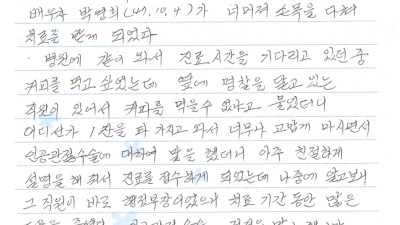 배우자 박영희(49.10.4)가 넘어져 손목을 다쳐
치료를 받게 되었다
· 병원에 같이 와서 진료시간을 기다리고 있던 중
커피를 먹고 싶었는데 옆에 명찰을 달고 있는
직원이 있어서 커피를 먹을수 없냐고 물었더니
어디선가 1잔을 타 가지고 와서 너무나 고맙게 마시면서
인공관절수술에 대하여 말을 했더니 아주 친절하게
설명을 해 줘서 진료를 접수하게 되었는데 나중에 알고보니
그 직원이 바로 행정부장이었으며 치료 기간 동안 많은